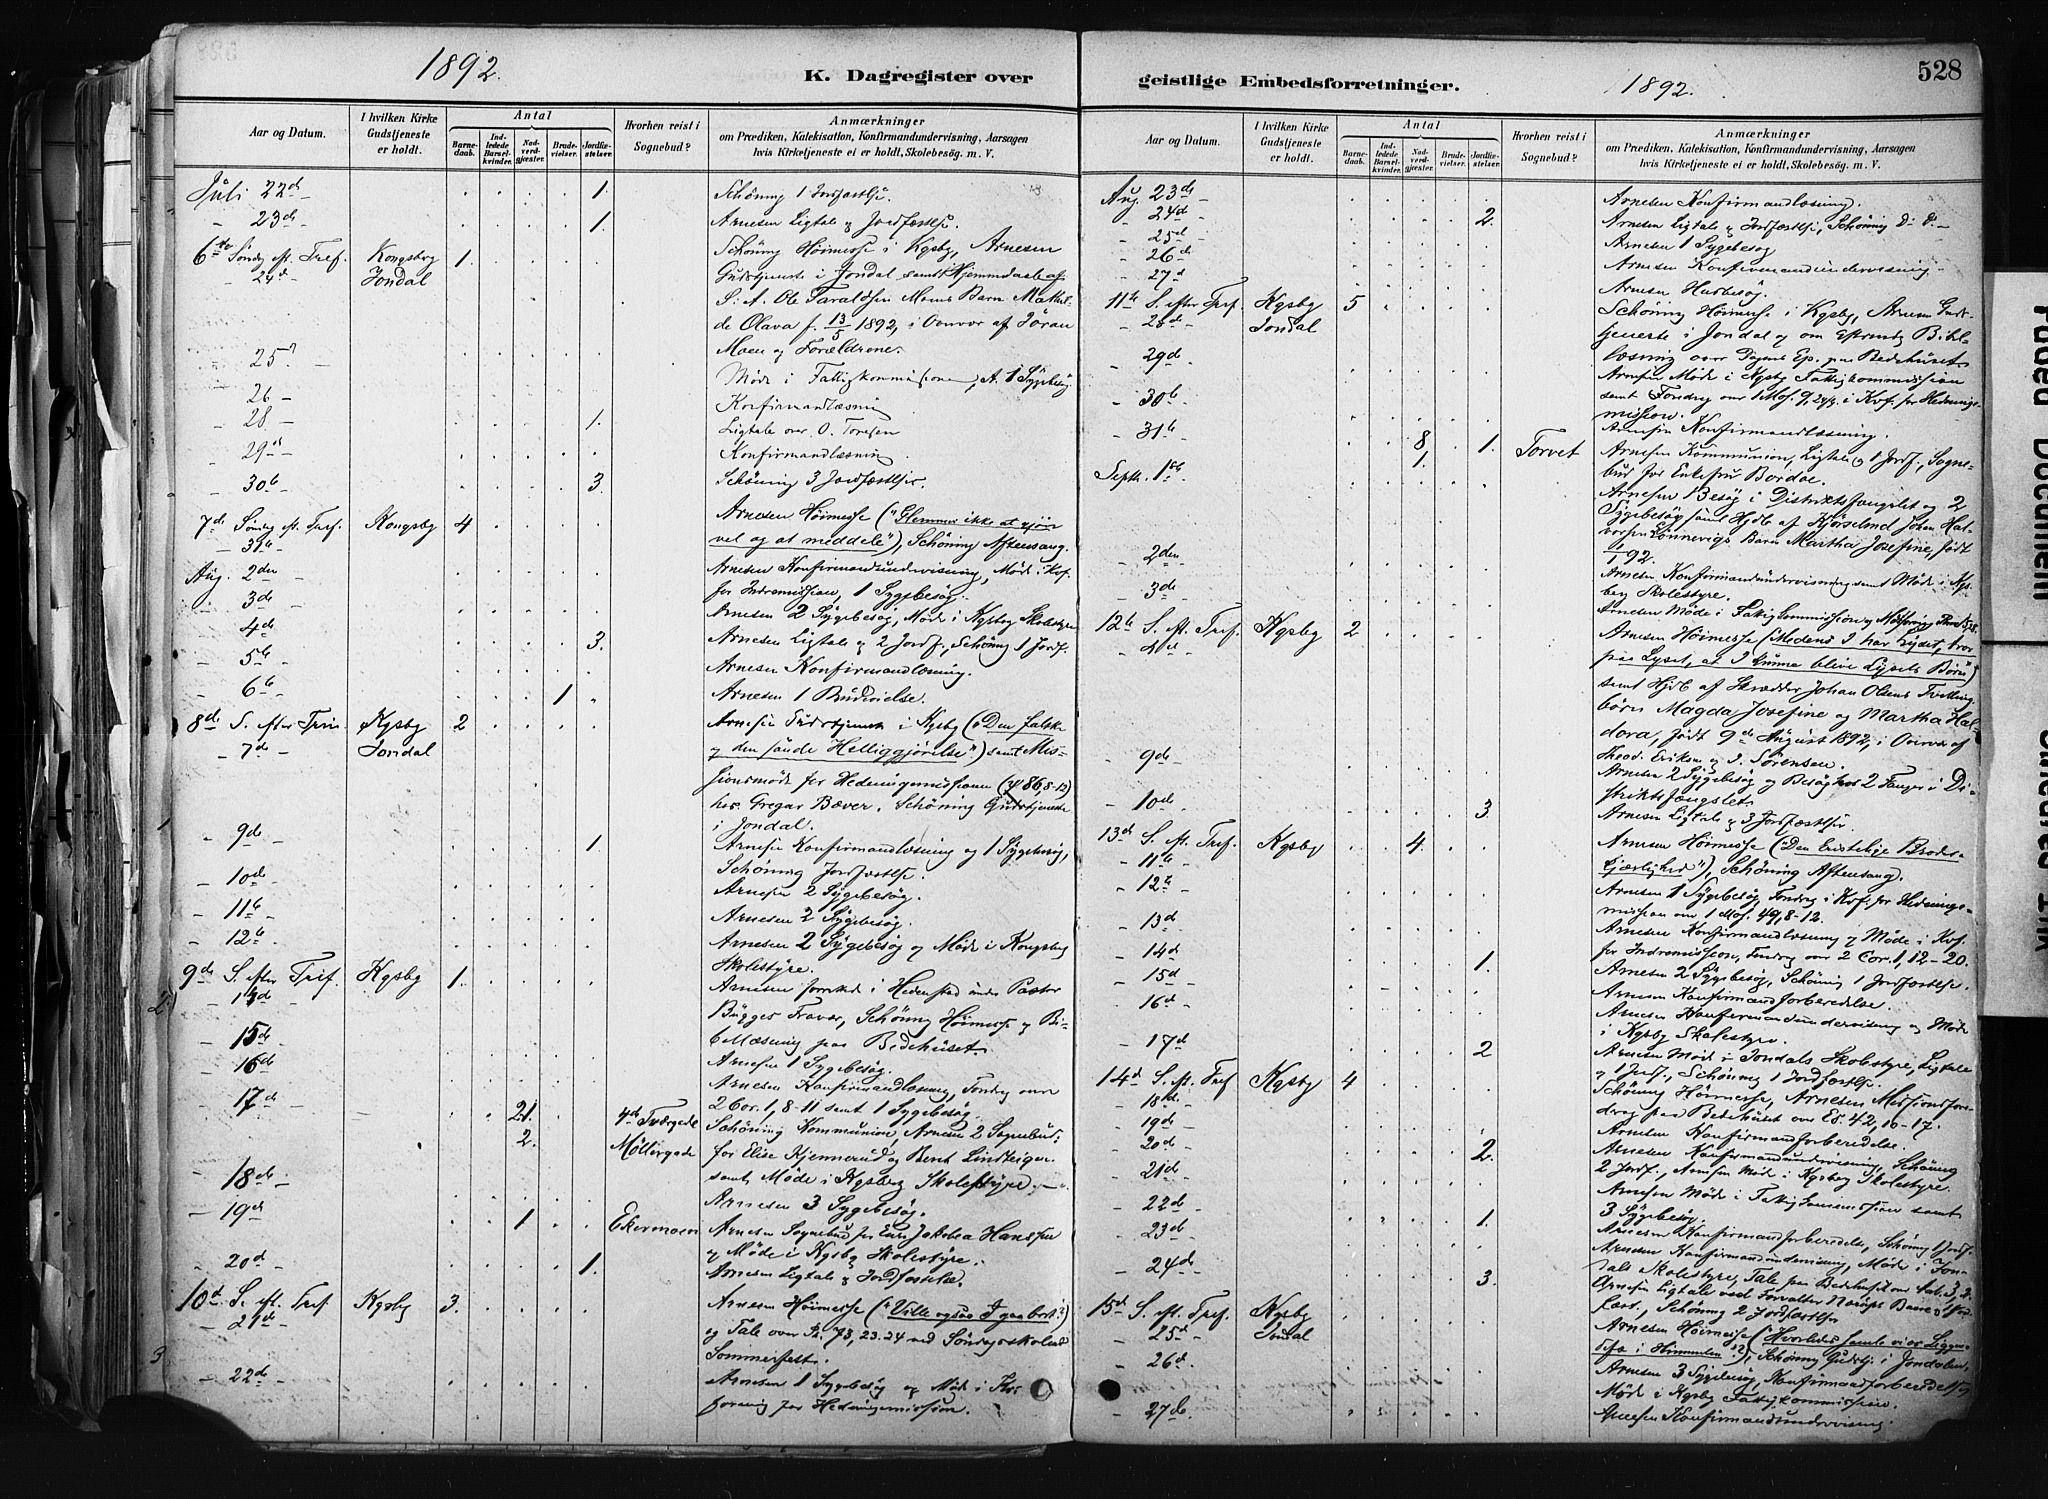 1892.
K. Dagregister over
Aar og Datum.
I hvilken Kirke Gudstjeneste er holdt.
Antal
Barnedaab.
Indledede Barselkvinder.
Nadverdgjester.
Brudevielser.
Jordfæstelser.
Hvorhen reist i Sognebud?
Anmærkninger
om Prædiken, Katekisation, Konfirmandundervisning, Aarsagen
hvis Kirketjeneste ei er holdt, Skolebesøg. m. V.
Juli 22d 1. Schöning 1 Jordfæstelse.
- 23d 1. Arnesen Ligtale & Jordfæstelse.
6te Søndg eft. Tref. Kongsberg 1. Schöning Höimesse i Kgsbg, Arnesen
24d Jondal Gudstjeneste i Jondal samt Hjemmedaab af
S. A. Ole Taraldsen Moens Barn Mathil-
de Olava f. 13/5 1892, i Overvær af Jöran
Moen og Forældrene.
- 25 Möde i Fattigkommissionen, A. 1 Sygebesøg
- 26 - Konfirmandlæsning
- 28 1. Ligtale over O. Toresen
- 29d Konfirmandlæsning
- 30te 3. Schöning 3 Jordfæstelser
7de Søndg eft. Tref. Kongsbg 4 Arnesen Höimesse ("Glemmer ikke at gjøre
- 31te - vel og at meddele"), Schöning Aftensang.
Aug. 2den Arnesen Konfirmandundervisning, Möde i Kvf.
- 3de for Indremission, 1 Sygebesøg.
- 4de Arnesen 2 Sygebesøg, Möde i Kgsbg Skolestyre
- 5te 3. Arnesen Ligtale & 2 Jordf., Schöning 1 Jordf.
Arnesen Konfirmandlæsning.
- 6te 1 Arnesen 1 Brudevielse.
8de S. efter Trin. Kgsbg 2 Arnesen Gudstjeneste i Kgsbg ("Den falske
- 7de - Jondal og den sande Helliggjörelse") samt Mis-
sionsmöde for Hedningemissionen (ψ 86, 8-13)
hos Gregar Bæver. Schöning Gudstjeneste
i Jondal.
- 9de 1. Arnesen Konfirmandlæsning og 1 Sygebesøg,
Schöning Jordfæstelse.
- 10de Arnesen 2 Sygebesøg.
- 11te Arnesen 2 Sygebesøg.
- 12te Arnesen 2 Sygebesøg og Möde i Kongsberg
Skolestyre.
9de S. efter Tref. Kgsbg 1. Arnesen forrettede i Hedenstad under Pastor
- 14d Bügges Fravær, Schöning Höimesse og Bi-
- 15de bellæsning paa Bedehuset.
- 16de Arnesen 1 Sygebesøg.
Arnesen Konfirmandlæsning, Foredrag over
- 17de 2 Cor. 1, 8-11 samt 1 Sygebesøg.
21. 4de Tværgade Schöning Kommunion, Arnesen 2 Sognebud:
2. Möllergade for Elise Kjennerud og Bent Lindteigen
- 18de samt Möde i Kgsberg Skolestyre. -
Arnesen 3 Sygebesøg.
- 19de 1 Ekermoen Arnesen Sognebud for Enke Jakobea Hansen
og Möde i Kgsbg Skolestyre.
- 20d 1. Arnesen Ligtale & Jordfæstelse.
10d S. eft. Tref. Kgsbg 3. Arnesen Höimesse ("Ville ogsaa I gaa bort?")
- 21d - og Tale over Ps. 73, 23.24 ved Söndagsskolens
Sommerfest.
- 22de Arnesen 1 Sygebesøg og Möde i Kvf.
forening for Hedningemission.
1
2)
3
geistlige Embedsforretninger.
1892.
528
Aar og Datum.
I hvilken Kirke Gudstjeneste er holdt.
Antal
Barnedaab.
Indledede Barselkvinder.
Nadverdgjester.
Brudevielser.
Jordfæstelser.
Hvorhen reist i Sognebud?
Anmærkninger
om Prædiken, Katekisation, Konfirmandundervisning, Aarsagen
hvis Kirketjeneste ei er holdt, Skolebesøg. m. V.
Aug. 23de - Arnesen Konfirmandlæsning.
- 24d 2. Arnesen Ligtale & Jordfæstelse, Schöning D. D. -
- 25d Arnesen 1 Sygebesøg
- 26de Arnesen Konfirmandundervisning.
- 27d Arnesen Husbesøg.
11te S. efter Tref. Kgsbg 5 Schöning Höimesse i Kgsbg, Arnesen Guds-
- 28d - Jondal tjeneste i Jondal og om Eftermdg Bibel-
læsning over Dagens Ep. paa Bedehuset
- 29d Arnesen Möde i Kgsbg Fattigkommission
- 30te samt Foredrag over 1 Mos. 9, 24 i Kvf. for Hednings-
mission.
- 31te Arnesen Konfirmandlæsning.
8 1. Torvet Arnesen Kommunion, Ligtale & 1 Jordf., Sogne-
Septr. 1ste 1. bud for Enkefru Bordoe.
Arnesen 1 Besøg i Distriktsfængslet og 2
Sygebesøg samt Hjdb af Kjörselmd Johan Hal-
vorsen Lönnevigs Barn Martha Josefine, født
- 2den /1 92.
Arnesen Konfirmandundervisning samt Möde i Kgs-
- 3de berg Skolestyre.
Arnesen Möde i Fattigkommission
12te S. eft. Tref. Kgsbg 2 Arnesen Höimesse (Medens I har Lyset, tror
- 4d - paa Lyset, at I kunne blive Lysets Børn")
samt Hjdb af Skrædder Johan Olsens Tvilling-
börn Magda Josefine og Martha Hal-
dora, født 9de August 1892, i Overvær af
- 9de Theod. Eriksen og I. Sörensen.
Arnesen 2 Sygebesøg og Besøg hos 2 Fanger i Di-
- 10de striktsfængslet.
3. Arnesen Ligtale & 3 Jordfæstelser.
13de S. eft. Tref. Kgsbg 4. Arnesen Höimesse ("Den kristelige Broder-
- 11te - kjærlighed"), Schöning Aftensang.
- 12te Arnesen 1 Sygebesøg, Foredrag i Kvf. for Hednings-
mission over 1 Mos. 49, 8-12.
- 13d Arnesen Konfirmandlæsning og Möde i Kvf.
- 14d 1. for Indremission, Foredrag over 2 Cor. 1, 12-20.
- 15d Arnesen 2 Sygebesøg, Schöning 1 Jordfæstelse.
- 16d Arnesen Konfirmandforberedelse.
Arnesen Konfirmandundervisning og Möde
- 17d 2 i Kgsbg Skolestyre.
Arnesen Möde i Jondals Skolestyre, Ligtale
14d S. eft. Tref Kgsbg 4 og 1 Jordf., Schöning 1 Jordfæstelse.
- 18de - Schöning Höimesse, Arnesen Missionsfore-
- 19de drag paa Bedehuset over Es. 42, 10-17.
- 20de Arnesen Konfirmandforberedelse.
2. Arnesen Konfirmandundervisning, Schöning
- 21d 2 Jordf., Arnesen Möde i Kgsbg Skolestyre.
- 22d Arnesen Möde i Fattigkommissionen samt
1. 3 Sygebesøg.
- 23d Arnesen Konfirmandforberedelse, Schöning 1 Jordf.
- 24d Arnesen Konfirmandundervisning, Möde i Jon-
3. dals Skolestyre, Tale paa Bedehuset over Gal. 3, 2.
Arnesen Ligtale ved Forvalter Narups Baare & Jord-
fæst., Schöning 2 Jordfæstelser
15d S. eft. Tref. Kgsbg Arnesen Höimesse ("Hvorledes samle vi os Liggen-
- 25d Jondal defæ i Himmelen?"), Schöning Gudstj. i Jondalen.
- 26d. Arnesen 3 Sygebesøg, Konfirmandforberedelse &
Möde i Kgsbg Fattigkommission.
- 27de Arnesen Konfirmandundervisning.